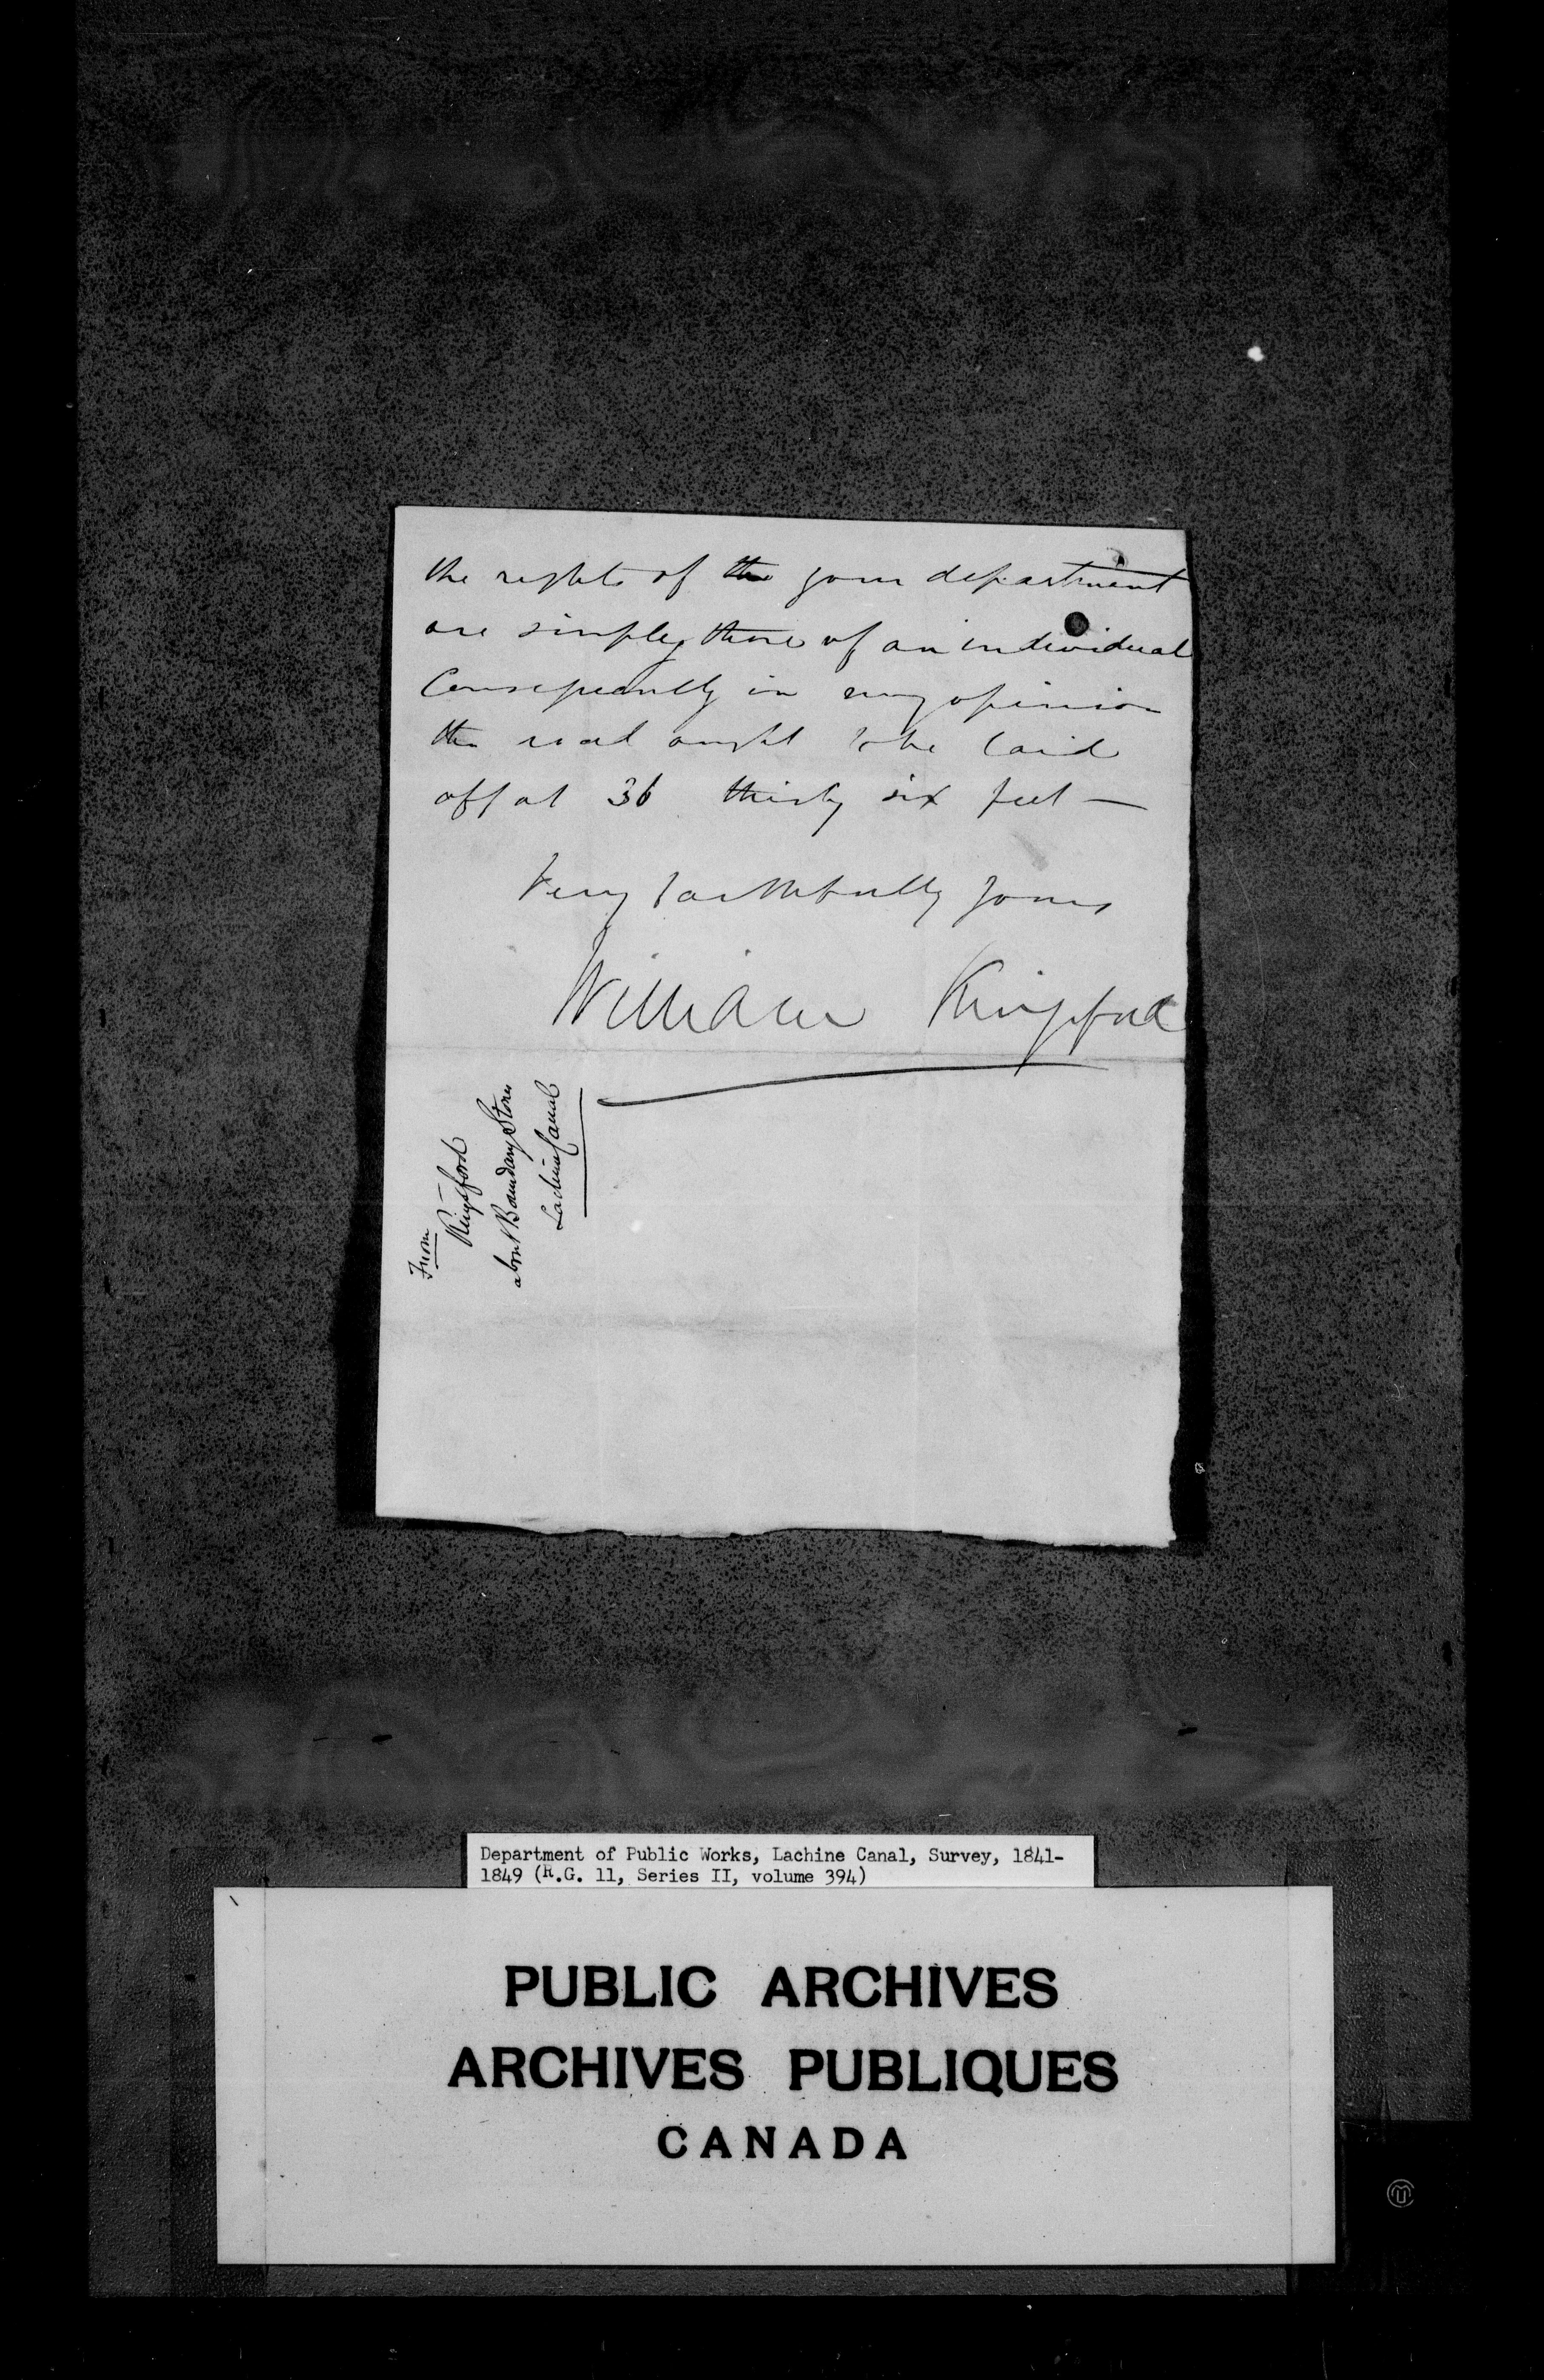 the rights of the your department
are simply those of an individual
Consequently in my opinion
the road ought to be laid
off at 36 thirty six feet —
Very faithfully Yours
William Kingsford
From
Kingsford
about Boundary Stones
Lachine Canal
Department of Public Works, Lachine Canal, Survey, 1841-
1849 (R.G. 11, Series II, volume 394)
PUBLIC ARCHIVES
ARCHIVES PUBLIQUES
CANADA